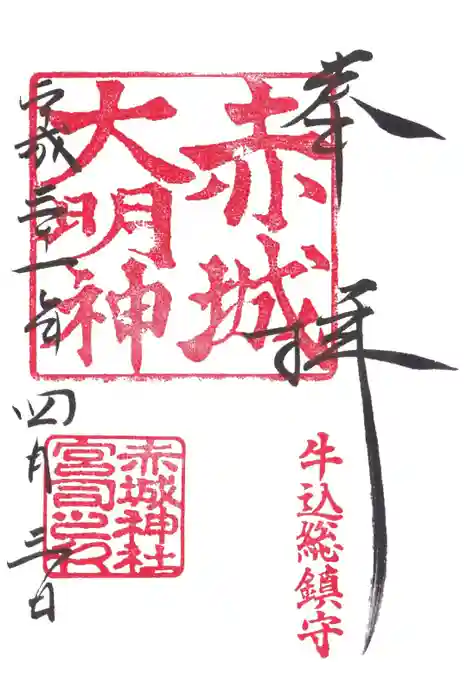 奉拝
牛込総鎮守
赤城
大明神
赤城神社
宮司之印
平成三十一年四月三日